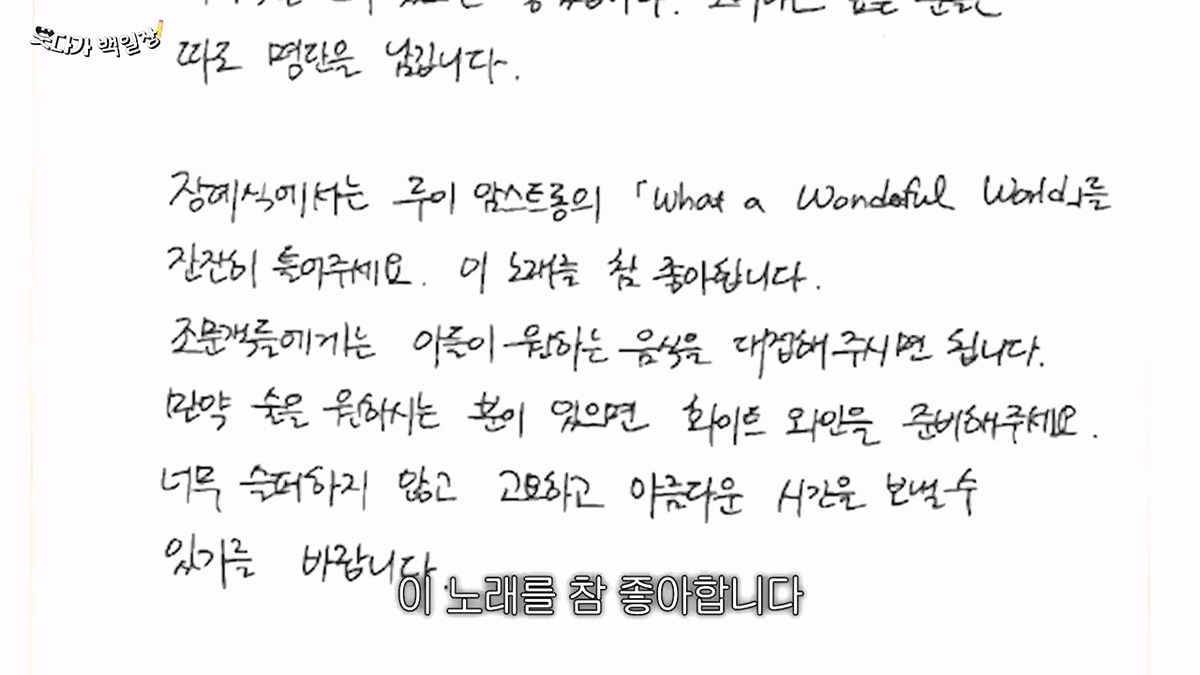 못다가 백일장
따로 명단을 남깁니다.
장례식에서는 루이 암스트롱의 「What a Wonderful World」를
잔잔히 틀어주세요. 이 노래를 참 좋아합니다.
조문객들에게는 아들이 원하는 음식을 대접해주시면 됩니다.
만약 술을 원하시는 분이 있으면 화이트 와인을 준비해주세요.
너무 슬퍼하지 않고 고요하고 아름다운 시간을 보낼 수
있기를 바랍니다.
이 노래를 참 좋아합니다